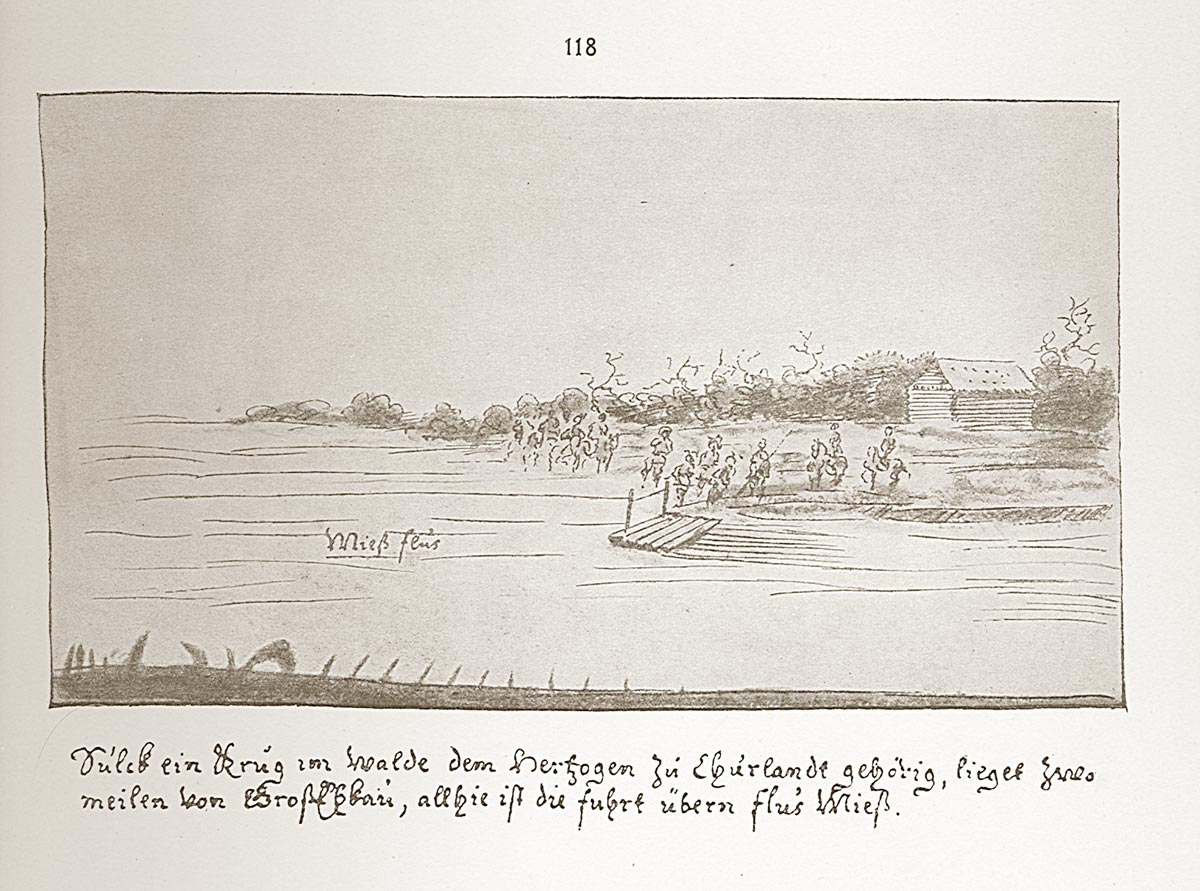 118
Mieß flus
Súlck ein Krúg im walde dem Hertzogen zú Chúrlandt gehörig, lieget zwo
meilen von Groß Ekaú, allhie ist die fuhrt übern flus Mieß.